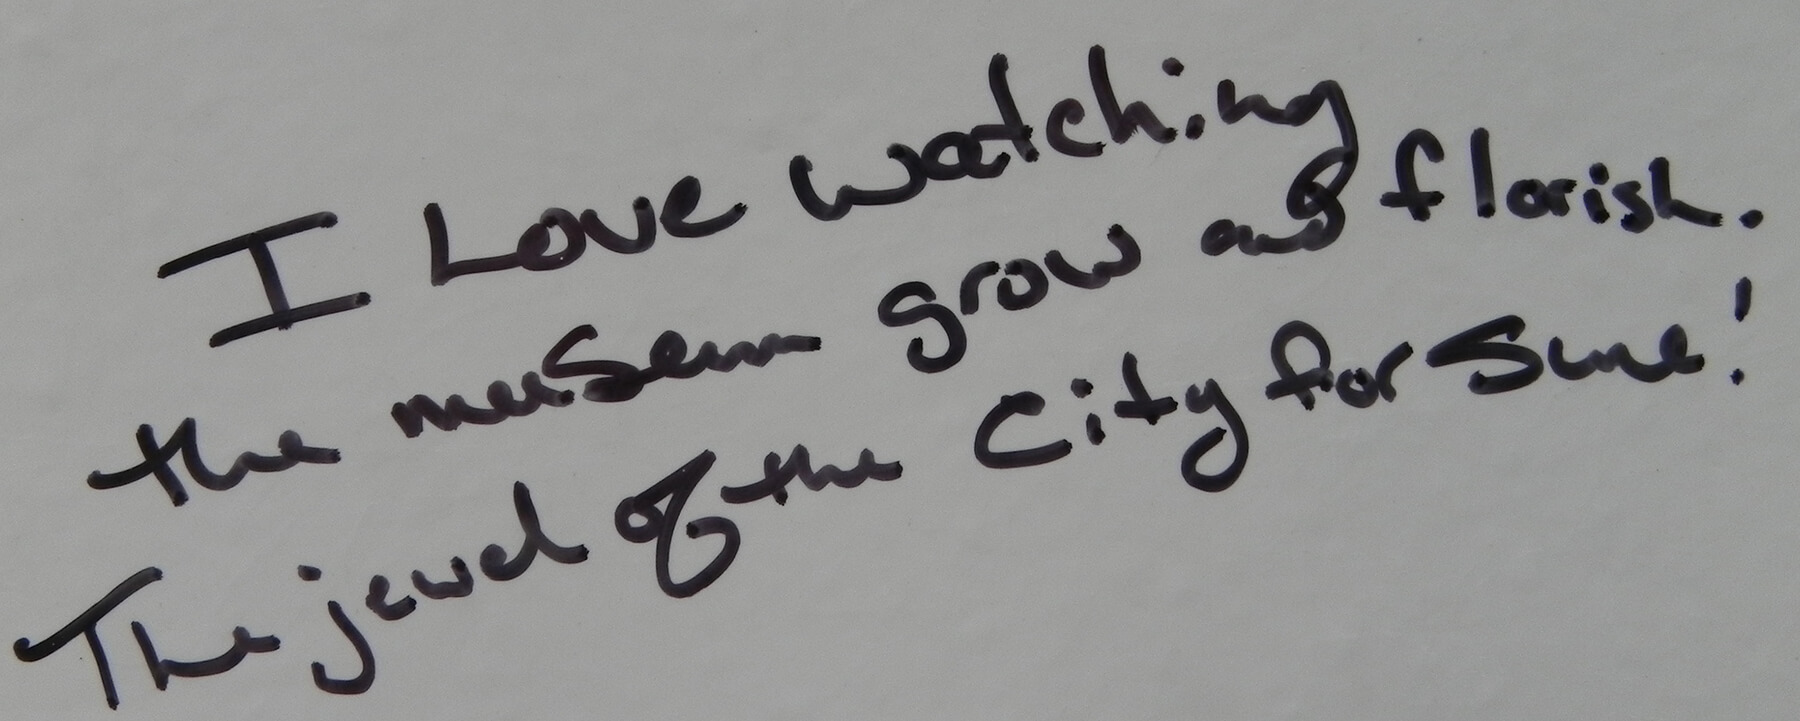 I Love watching
the museum grow and florish.
The jewel of the City for Sure!